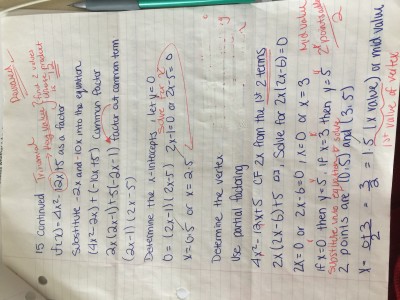 15 continued
Trinomial
f(x) = 4x² - 12x + 5 as a factor
Substitute -2x and -10x into the equation
(4x² - 2x) + (-10x + 5) common factor
2x (2x - 1) + 5 (-2x - 1) factor out common term
(2x - 1) (2x - 5)
Determine the x-intercepts, let y = 0
Solve for x
0 = (2x - 1) (2x - 5) 2x - 1 = 0 or 2x - 5 = 0
x = 0.5 or x = 2.5
Determine the vertex
Use partial factoring
4x² - 12x + 5 CF 2x from the 1st 2 terms
2x (2x - 6) + 5 Solve for 2x (2x - 6) = 0
2x = 0 or 2x - 6 = 0, x = 0 or x = 3
if x = 0 then y = 5, if x = 3 then y = 5
Substitute into equation solve
2 points are (0, 5) and (3, 5)
mid value
2 points add
2
x = 0 + 3 = 3 = 1.5 (x value) or mid value
2 2
1st value of vertex